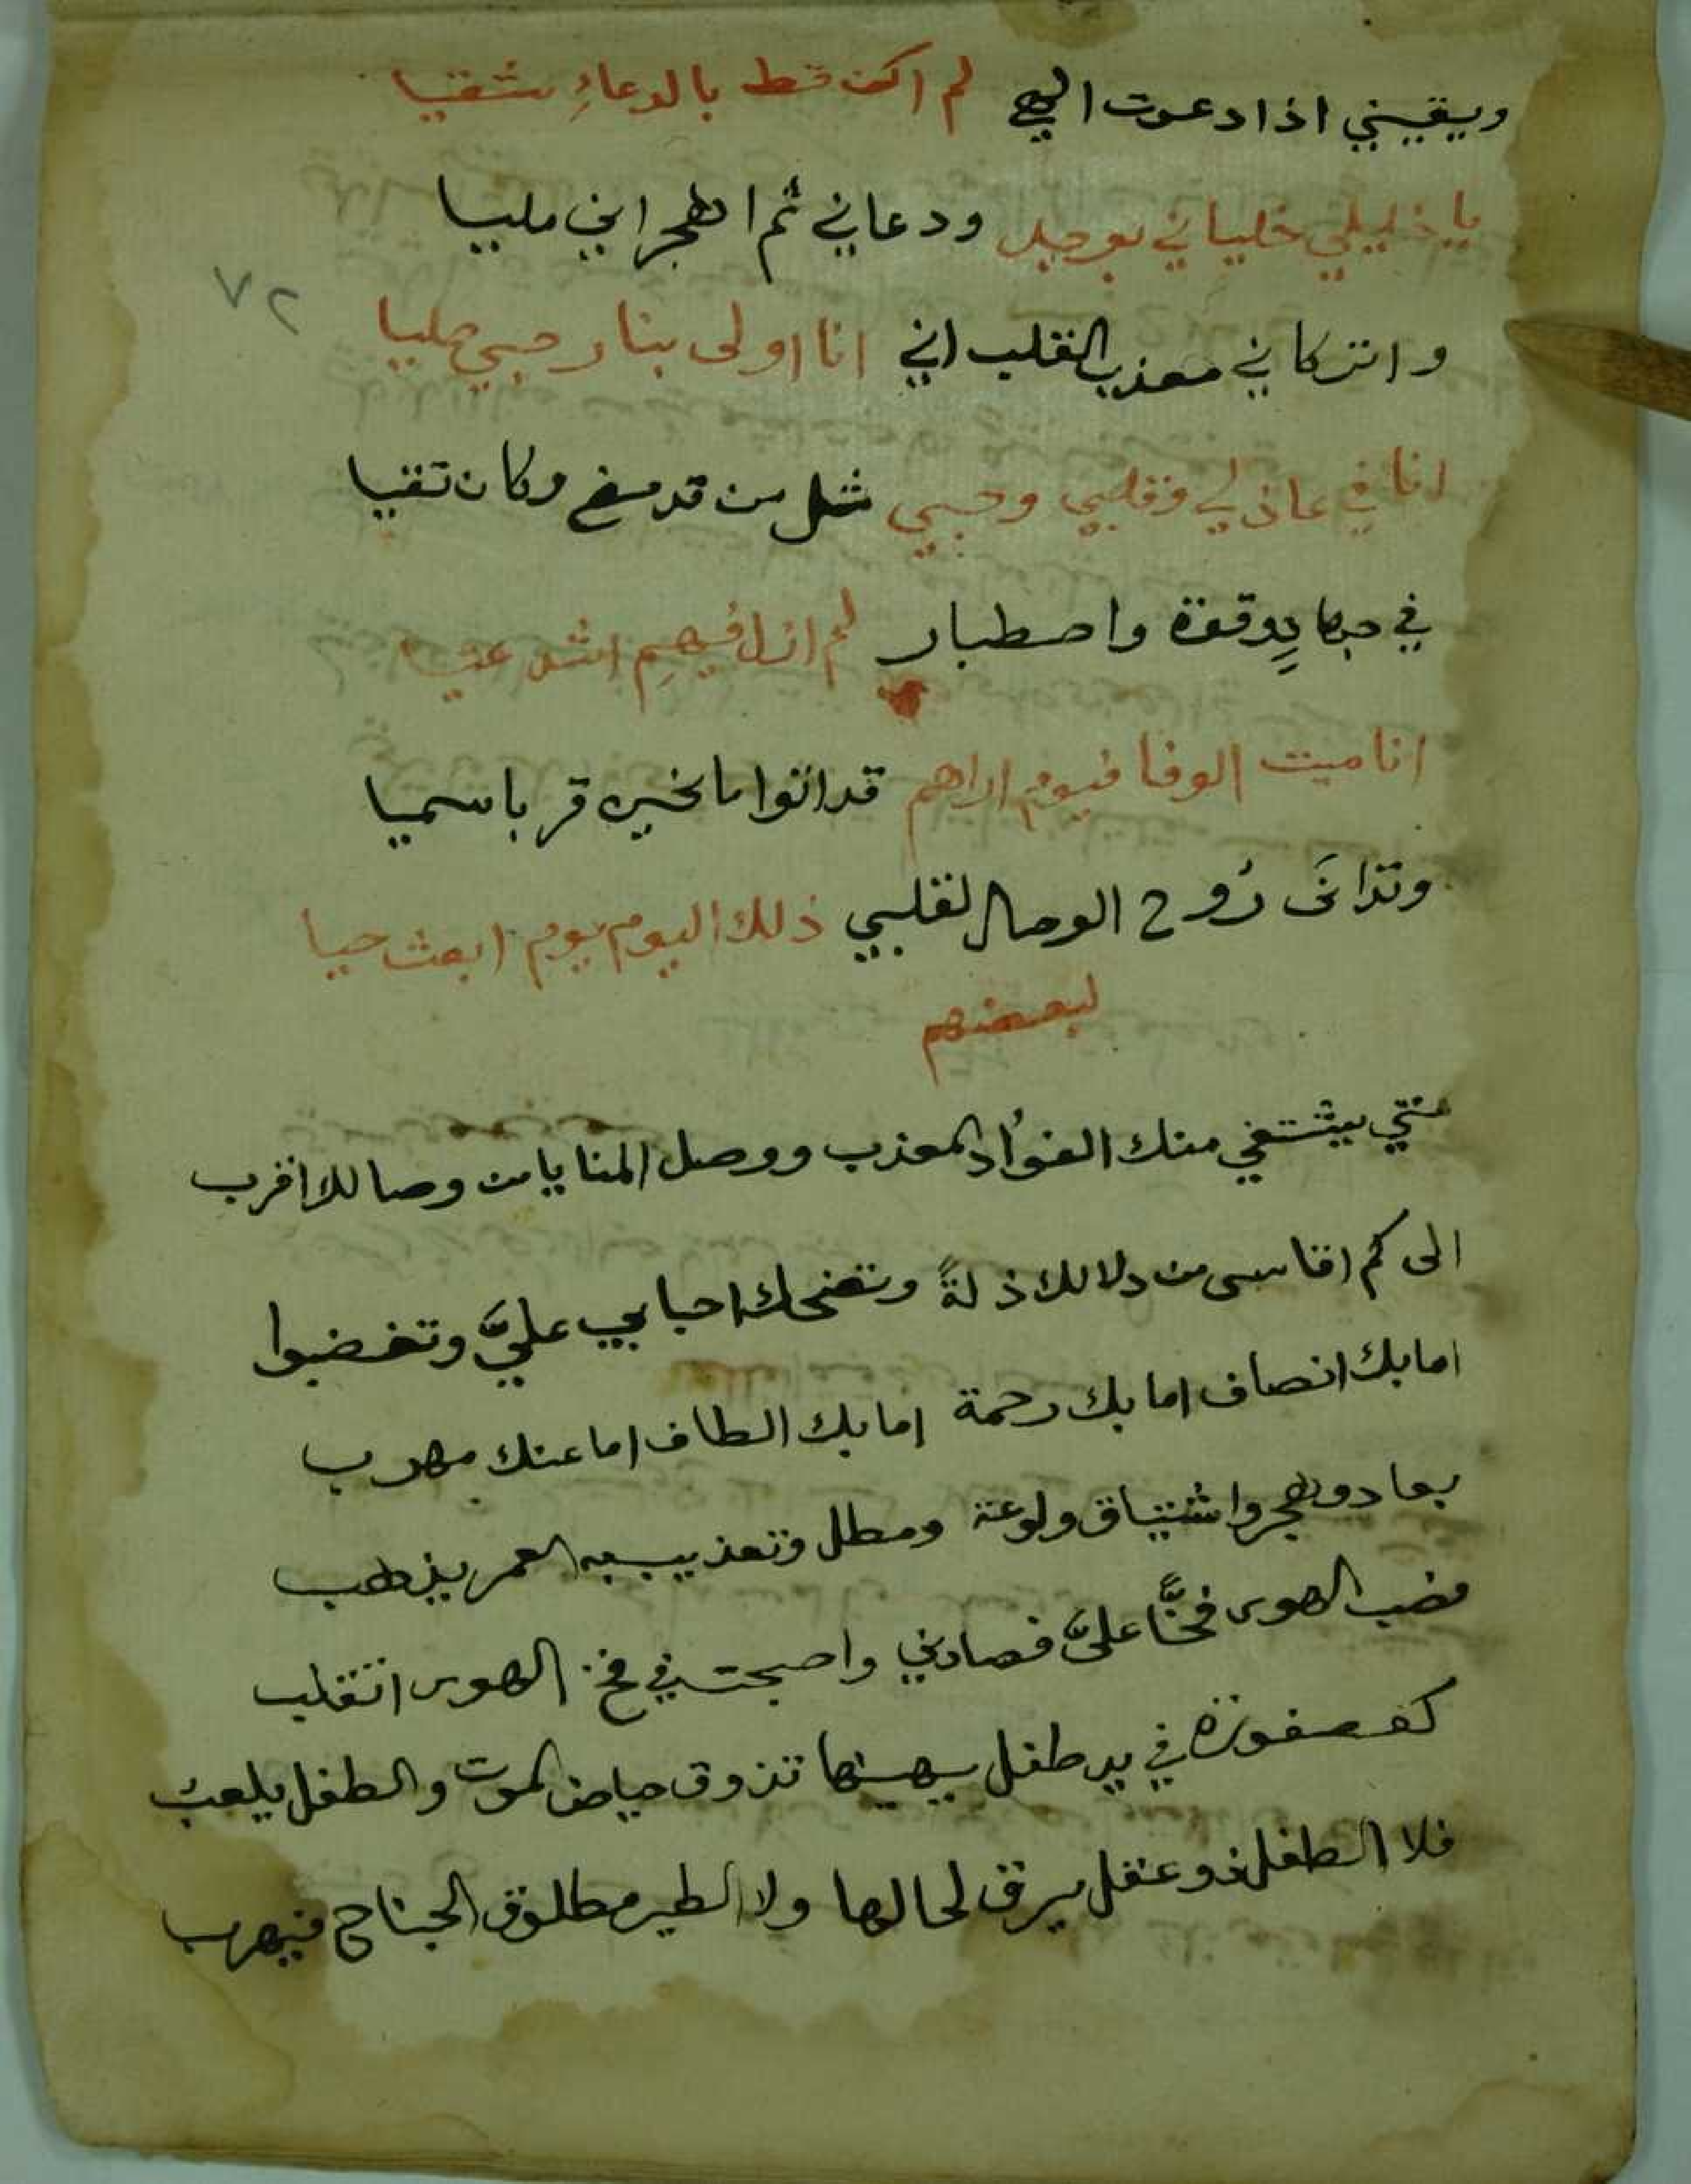 ويقيني اذا دعوت الهي لم اكن قط بالدعاءِ شقيا
يا خليلي خلياني بوجدي ودعاني ثم اهجراني مليا
٧٢
واتركاني معذب القلب اني انا اولى بنار حبي صليا
انا في عاذلي وقلبي وحبي مثل من قد مضى وكان تقيا
في حبها وقفة واصطبار لم ازل فيهم اشد عتيا
انا ميت الوفا فيوم اراهم قد اتوا ما بخيره قربا سميا
وتدانى رُوح الوصال لقلبي ذلك اليوم يوم ابعث حيا
لبعضهم
متى يشتفي منك الفؤاد المعذب ووصل المنايا من وصالك اقرب
الى كم اقاسى من دلالك ذلةً وتضحك احبابي عليَّ وتغضبوا
اما بك انصاف اما بك رحمة اما بك الطاف اما عنك مهرب
بعاد وهجر واشتياق ولوعة ومطل وتعذيب به العمر يذهب
نصب الهوى فخًّا عليَّ فصادني واصبحت في فخ الهوى اتقلب
كعصفورة في يد طفل يهينها تذوق حياض الموت والطفل يلعبُ
فلا الطفل ذو عقل يرق لحالها ولا الطير مطلوق الجناح فيهرب